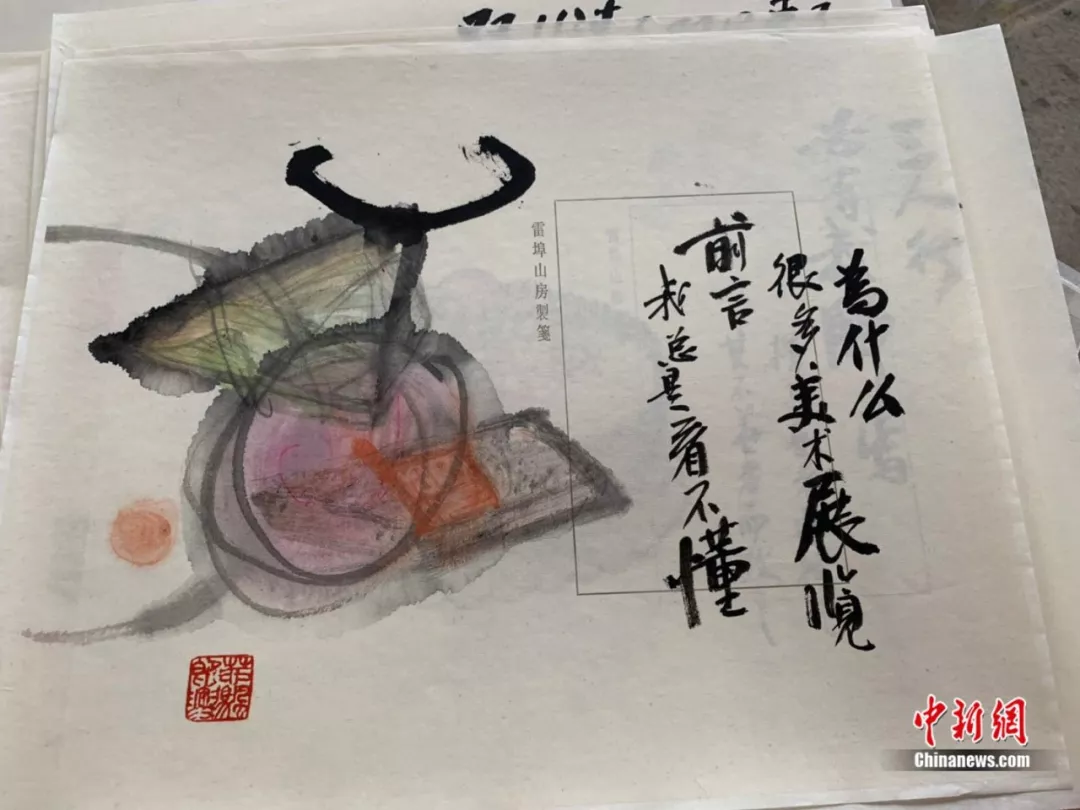 为什么
很多美术展览
前言
我总是看不懂
雷埠山房製箋
中新網
Chinanews.com